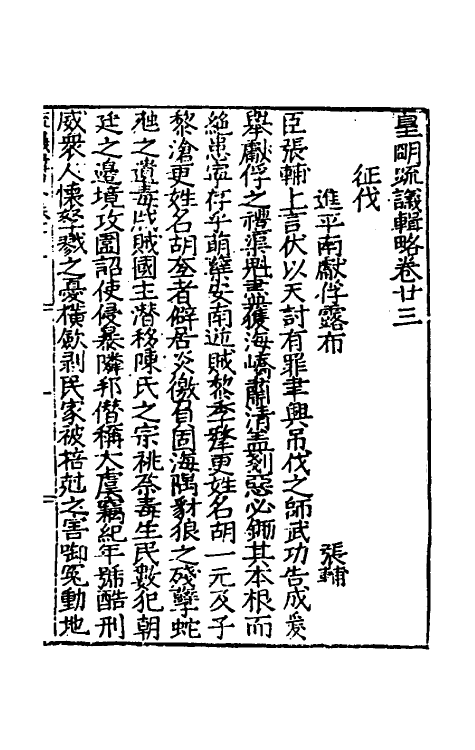 皇明疏議輯略卷廿三
征伐
進平南獻俘露布
張輔
臣張輔上言伏以天討有罪聿興吊伐之師武功告成爰
舉獻俘之禮渠魁畢獲海嶠肅清盖剡惡必鋤其本根而
絕患寔存乎萌孽安南逆賊黎季犛更姓名胡一元及子
黎滄更姓名胡𡗨者僻居炎徼負固海隅豺狼之殘孽蛇
虺之遺毒戕賊國主潜移陳氏之宗祧荼毒生民數犯朝
廷之邉境攻圍詔使侵暴隣邦僣稱大虞竊紀年號酷刑
威衆人懷孥戮之憂橫歛剥民家被掊尅之害啣冤動地